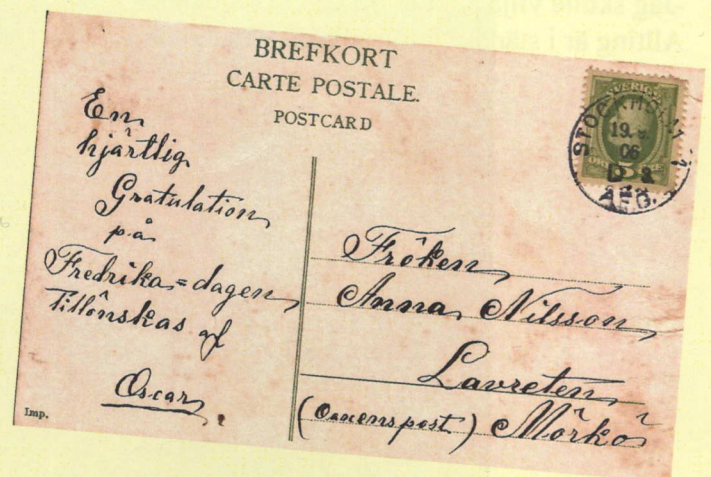 BREFKORT
CARTE POSTALE.
POSTCARD
SVERIGE
STOCKHOLM 1
19. 9.
06
AFG.
En
hjärtlig
Gratulation
på
Fredrika=dagen
Tillönskas af
Oscar
Imp.
Fröken
Anna Nilsson
Lavreten
(Oaxenspost) Mörkö